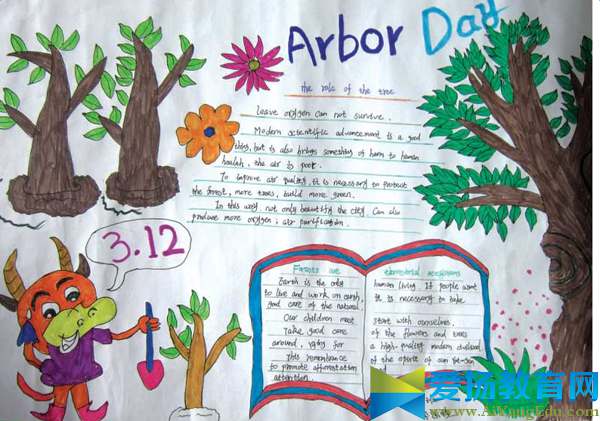 Arbor Day
the role of the tree
Leave oxygen can not survive.
Modern scientific advancement is a good
thing, but is also brings something of harm to human
health, the air is poor.
To improve air quality, it is necessary to protect
the forest, more trees, build more green.
In this way not only beautify the city. Can also
produce more oxygen; air purification.
3.12
Forests are
Earth is the only
to live and work on earth,
good care of the natural
Our children meet
Take good care
around,
This remembrance
to promote afforestation
attention.
terrestrial ecosystems
human living. If people want
It is necessary to take
start with ourselves
of the flowers and trees
a high-quality modern
of the spirit of our
爱扬教育网
www.AiYangEdu.com